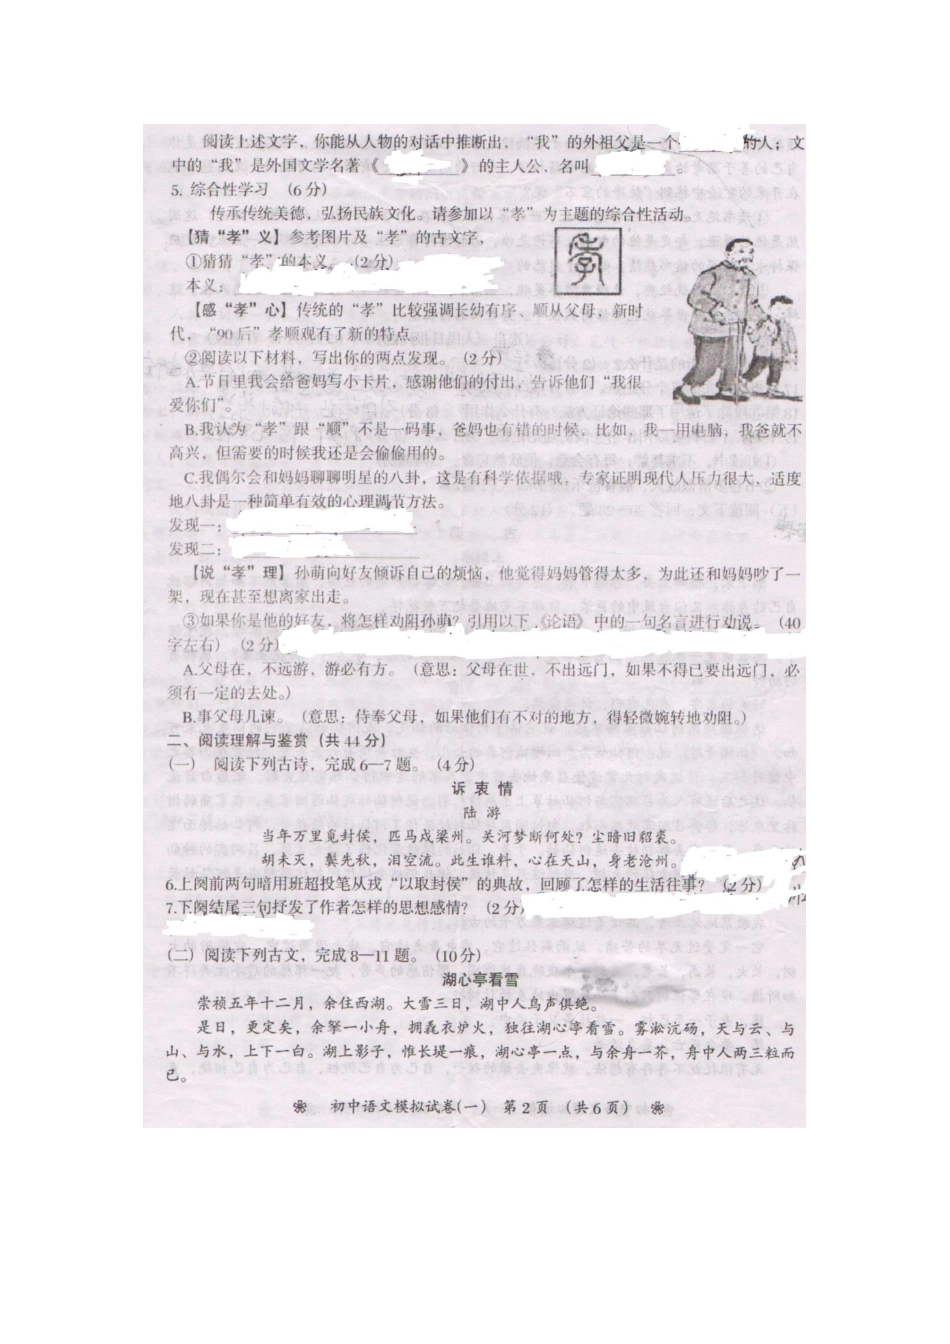 阅读上述文字，你能从人物的对话中推断出，“我”的外祖父是一个 的人；文
中的“我”是外国文学名著《 》的主人公，名叫 。
5. 综合性学习 （6分）
传承传统美德，弘扬民族文化。请参加以“孝”为主题的综合性活动。
【猜“孝”义】参考图片及“孝”的古文字，
①猜猜“孝”的本义。（2分）
本义：
【感“孝”心】传统的“孝”比较强调长幼有序、顺从父母，新时
代，“90后”孝顺观有了新的特点。
②阅读以下材料，写出你的两点发现。（2分）
A.节日里我会给爸妈写小卡片，感谢他们的付出，告诉他们“我很
爱你们”。
B.我认为“孝”跟“顺”不是一码事，爸妈也有错的时候，比如，我一用电脑，我爸就不
高兴，但需要的时候我还是会偷偷用的。
C.我偶尔会和妈妈聊聊明星的八卦，这是有科学依据哦，专家证明现代人压力很大，适度
地八卦是一种简单有效的心理调节方法。
发现一：
发现二：
【说“孝”理】孙萌向好友倾诉自己的烦恼，他觉得妈妈管得太多，为此还和妈妈吵了一
架，现在甚至想离家出走。
③如果你是他的好友，将怎样劝阻孙萌？引用以下《论语》中的一句名言进行劝说。（40
字左右）（2分）
A.父母在，不远游，游必有方。（意思：父母在世，不出远门，如果不得已要出远门，必
须有一定的去处。）
B.事父母几谏。（意思：侍奉父母，如果他们有不对的地方，得轻微婉转地劝阻。）
二、阅读理解与鉴赏（共44分）
(一） 阅读下列古诗，完成6—7题。（4分）
诉 衷 情
陆 游
当年万里觅封侯，匹马戍梁州。关河梦断何处？尘暗旧貂裘。
胡未灭，鬓先秋，泪空流。此生谁料，心在天山，身老沧州。
6.上阕前两句暗用班超投笔从戎“以取封侯”的典故，回顾了怎样的生活往事？（2分）
7.下阕结尾三句抒发了作者怎样的思想感情？（2分）
(二）阅读下列古文，完成8—11题。（10分）
湖心亭看雪
崇祯五年十二月，余住西湖。大雪三日，湖中人鸟声俱绝。
是日，更定矣，余拏一小舟，拥毳衣炉火，独往湖心亭看雪。雾凇沆砀，天与云、与
山、与水，上下一白。湖上影子，惟长堤一痕，湖心亭一点，与余舟一芥，舟中人两三粒而
已。
❀ 初中语文模拟试卷(一） 第2页 （共6页） ❀